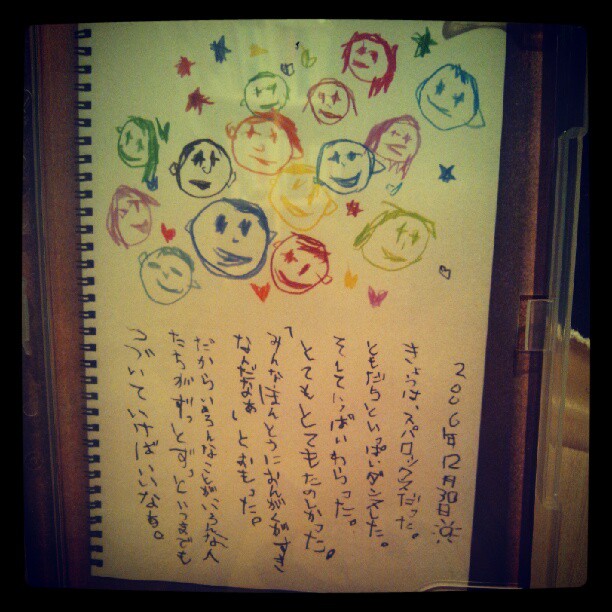 2006年12月30日
きょうは、スパロックマだった。
ともだちといっぱいダンスした。
そしていっぱいわらった。
とてもとてもたのしかったっ。
「みんなほんとうになんがくがすき
なんだなぁ」とおもった。
だからいろんなことがいろんな人
たちがずっとずっといつまでも
つづいていけばいいなぁ。